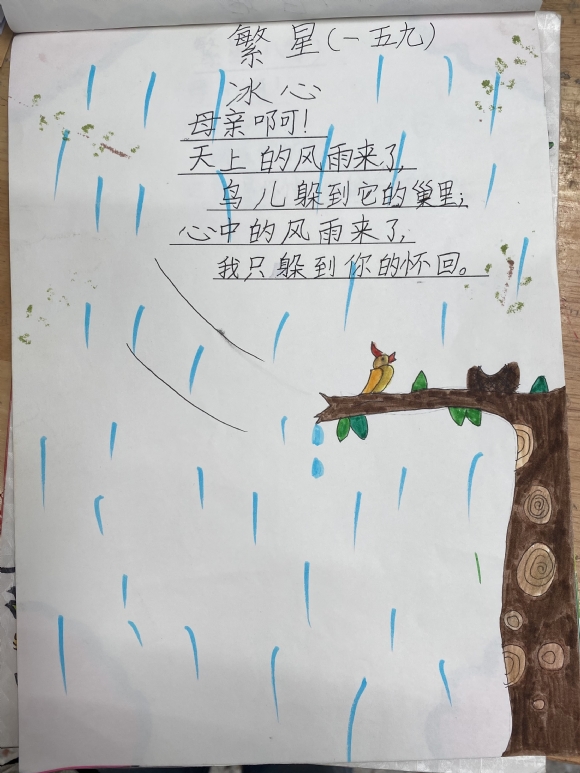 繁星(一五九)
冰心
母亲啊!
天上的风雨来了,
鸟儿躲到它的巢里;
心中的风雨来了,
我只躲到你的怀回。